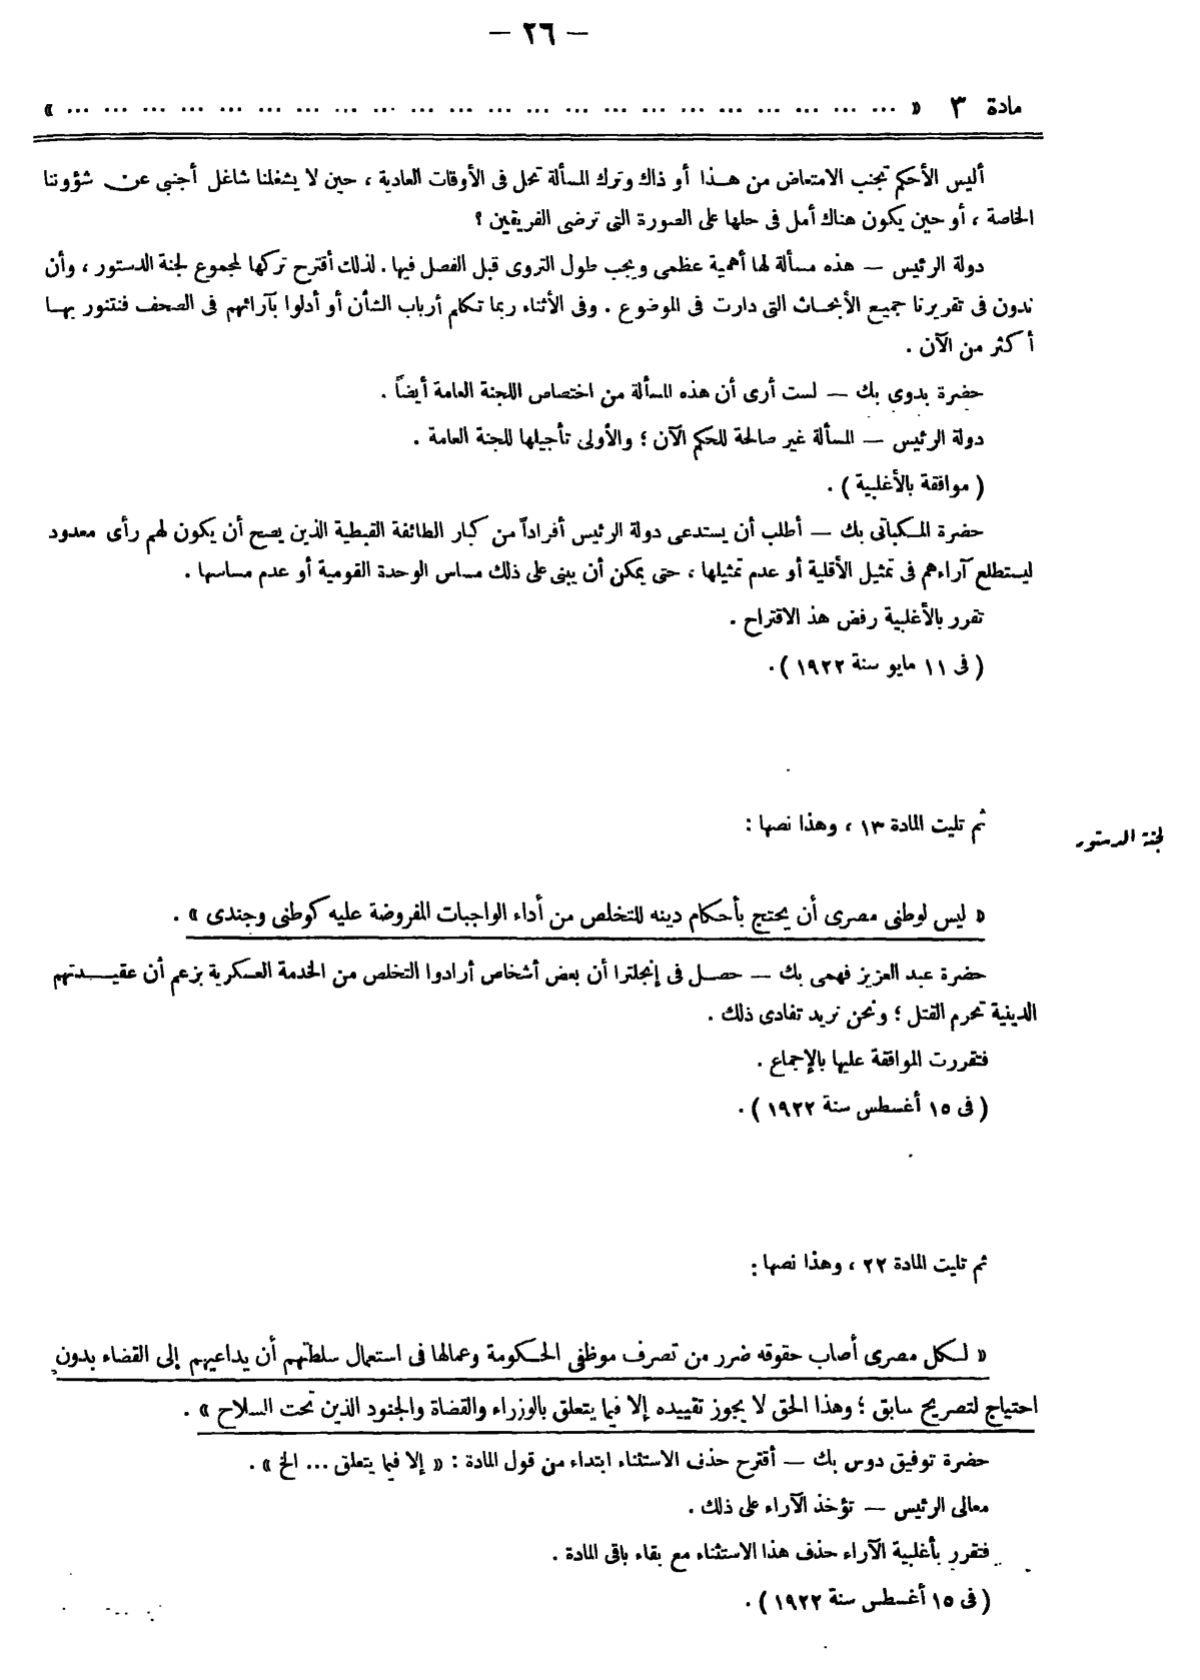 — ٢٦ —
مادة ٣ « ... ... ... ... ... ... ... ... ... ... ... ... ... ... ... ... ... ... ... ... ... ... »
أليس الأحكم تجنب الامتعاض من هـذا أو ذاك وترك المسألة تحل فى الأوقات العادية ، حين لا يشغلنا شاغل أجنبى عن شؤوننا
الخاصة ، أو حين يكون هناك أمل فى حلها على الصورة التى ترضى الفريقين ؟
دولة الرئيس — هذه مسألة لها أهمية عظمى ويجب طول التروى قبل الفصل فيها . لذلك أقترح تركها لمجموع لجنة الدستور ، وأن
ندون فى تقريرنا جميع الأبحـاث التى دارت فى الموضوع . وفى الأثناء ربما تكلم أرباب الشأن أو أدلوا بآرائهم فى الصحف فنتنور بهـا
أكثر من الآن .
حضرة بدوى بك — لست أرى أن هذه المسألة من اختصاص اللجنة العامة أيضاً .
دولة الرئيس — المسألة غير صالحة للحكم الآن ؛ والأولى تأجيلها للجنة العامة .
( موافقة بالأغلبية ) .
حضرة المكباتى بك — أطلب أن يستدعى دولة الرئيس أفراداً من كبار الطائفة القبطية الذين يصح أن يكون لهم رأى معدود
ليستطلع آراءهم فى تمثيل الأقلية أو عدم تمثيلها ، حتى يمكن أن يبنى على ذلك مساس الوحدة القومية أو عدم مساسها .
تقرر بالأغلبية رفض هذ الاقتراح .
( فى ١١ مايو سنة ١٩٢٢ ) .
لجنة الدستور
ثم تليت المادة ١٣ ، وهذا نصها :
« ليس لوطنى مصرى أن يحتج بأحكام دينه للتخلص من أداء الواجبات المفروضة عليه كوطنى وجندى » .
حضرة عبد العزيز فهمى بك — حصـل فى إنجلترا أن بعض أشخاص أرادوا التخلص من الخدمة العسكرية بزعم أن عقيـدتهم
الدينية تحرم القتل ؛ ونحن نريد تفادى ذلك .
فتقررت الموافقة عليها بالإجماع .
( فى ١٥ أغسطس سنة ١٩٢٢ ) .
ثم تليت المادة ٢٢ ، وهذا نصها :
« لـكل مصرى أصاب حقوقه ضرر من تصرف موظفى الحـكومة وعمالها فى استعمال سلطتهم أن يداعيهم إلى القضاء بدون
احتياج لتصريح سابق ؛ وهذا الحق لا يجوز تقييده إلا فيما يتعلق بالوزراء والقضاة والجنود الذين تحت السلاح » .
حضرة توفيق دوس بك — أقترح حذف الاستثناء ابتداء من قول المادة : « إلا فيما يتعلق ... الخ » .
معالى الرئيس — تؤخذ الآراء على ذلك .
فتقرر بأغلبية الآراء حذف هذا الاستثناء مع بقاء باقى المادة .
( فى ١٥ أغسطس سنة ١٩٢٢ ) .